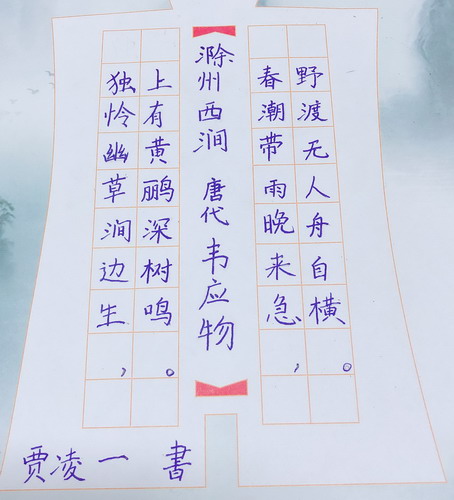 独怜幽草涧边生，
上有黄鹂深树鸣。
滁州西涧 唐代 韦应物
春潮带雨晚来急，
野渡无人舟自横。
贾凌一 書